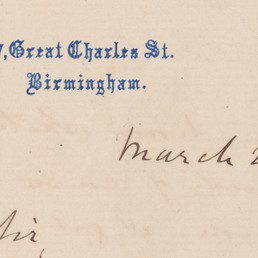 , Great Charles St.
Birmingham.
March 2
Sir,